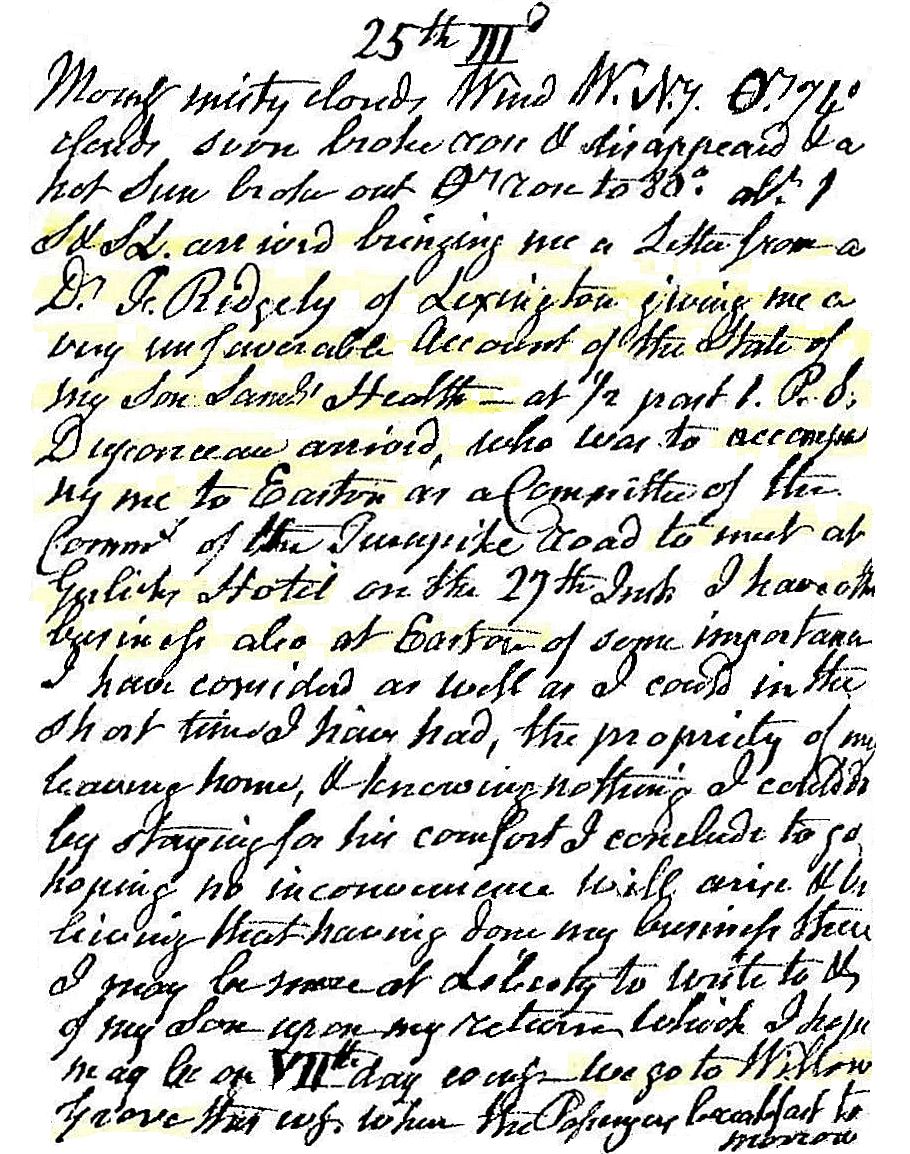 25th III d
Morng misty clouds Wind W. N.y. Or 74°
clouds soon broke &  disappeard & a
hot Sun broke out Or rose to 80° abt 1
S & SL. arrivrd bringing me a Letter from a
Dr. Fr. Ridgely of Lexington giving me a
very unfavorable Account of the State of
my Son Saml's Health – at 1/2 past 1. P. S.
Duponceau arrived, who was to accompa
ny me to Easton as a Committee of the
Comms of the Turnpike Road to meet at
Gulicks Hotel on the 27th Inst I have othr
business also at Easton of some importance
I have considerd as well as I could in the
short time I have had, the propriety of my
leaving home, & knowing nothing I could do
by staying for his comfort I conclude to go
hoping no inconvenience will arise & be
lieving that having done my business there
I may be more at Liberty to write to &
of my Son upon my return which I hope
may be on VIIth day comg – we go to Willow
Grove this evg. where the Passengers breakfast to
morrow